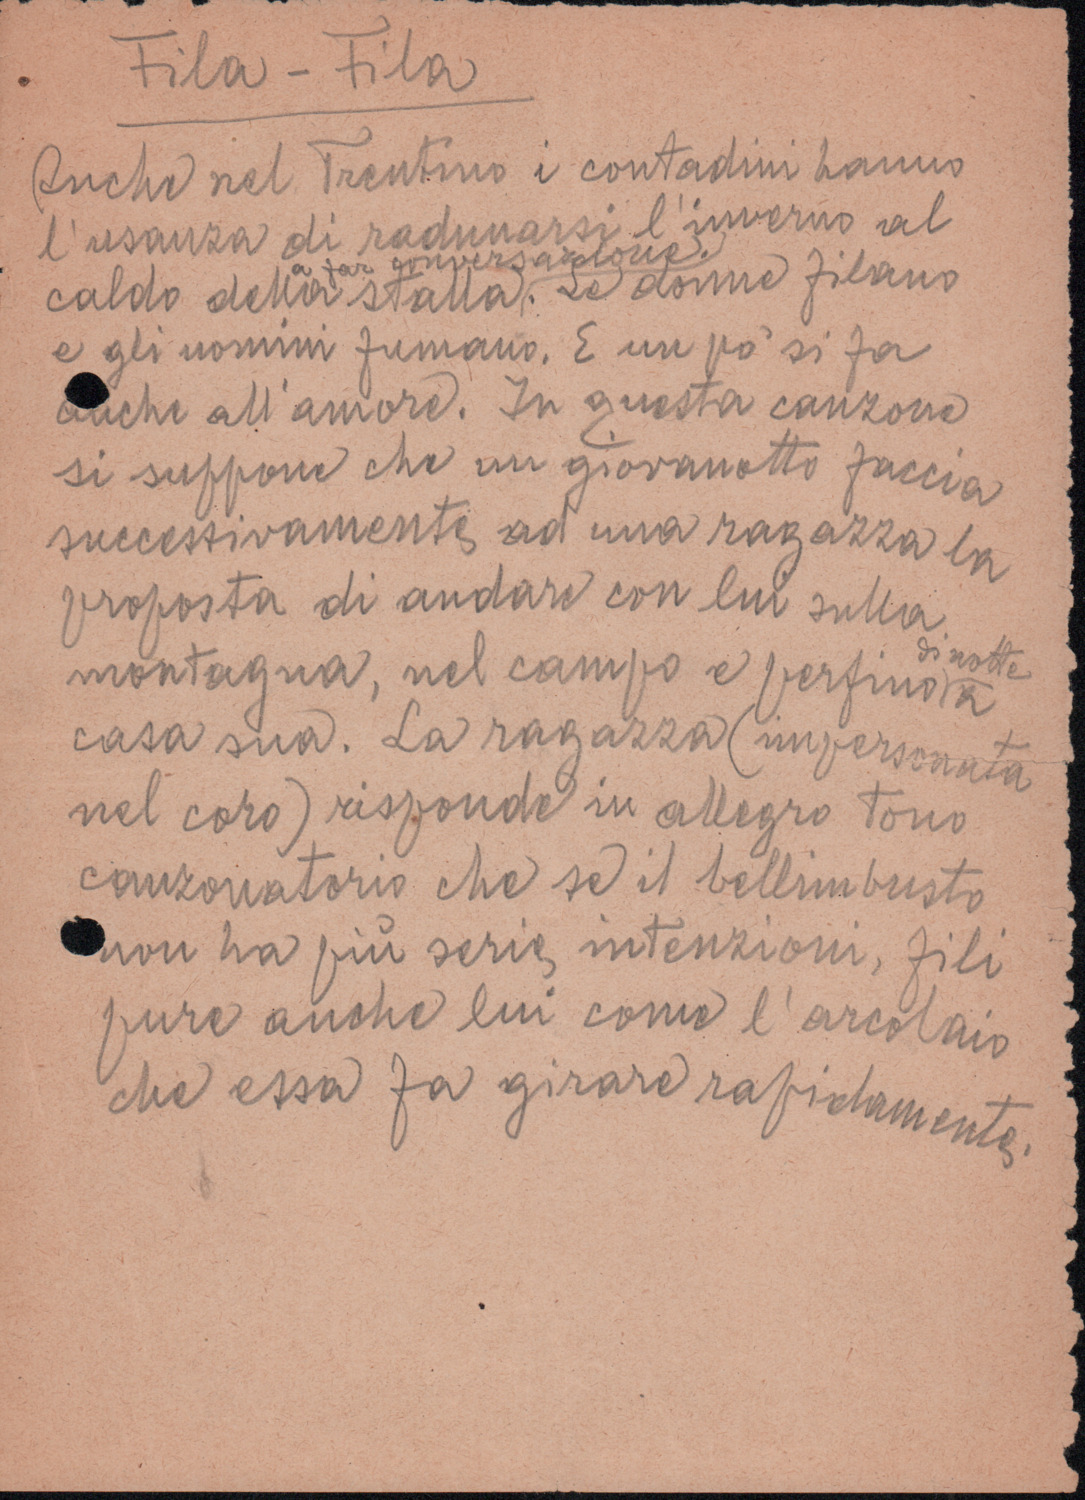 Fila - Fila
Anche nel Trentino i contadini hanno
l'usanza di radunarsi l'inverno al
a far conversazione.
caldo della stalla. Le donne filano
e gli uomini fumano. E un pò si fa
anche all'amore. In questa canzone
si suppone che un giovanotto faccia
successivamente ad una ragazza la
proposta di andare con lui sulla
montagna, nel campo e perfino di notte a
casa sua. La ragazza (impersonata
nel coro) risponde in allegro tono
canzonatorio che se il bellimbusto
non ha più serie intenzioni, fili
pure anche lui come l'arcolaio
che essa fa girare rapidamente.